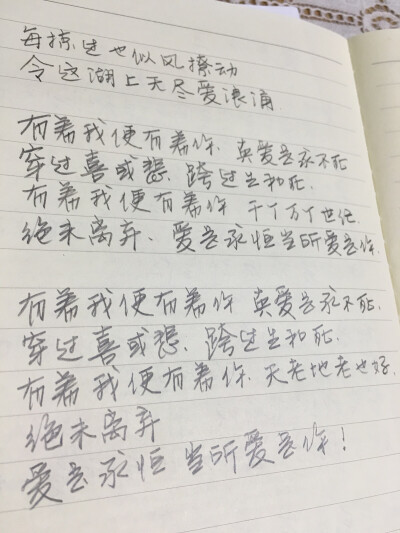 每掠过也似风撩动
令这湖上无尽爱浪涌
有着我便有着你 真爱是永不死
穿过喜或悲 跨过生和死
有着我便有着你 千个万个世纪
绝未离弃、爱是永恒当所爱是你
有着我便有着你 真爱是永不死
穿过喜或悲、跨过生和死
有着我便有着你 天老地老也好
绝未离弃
爱是永恒 当所爱是你!